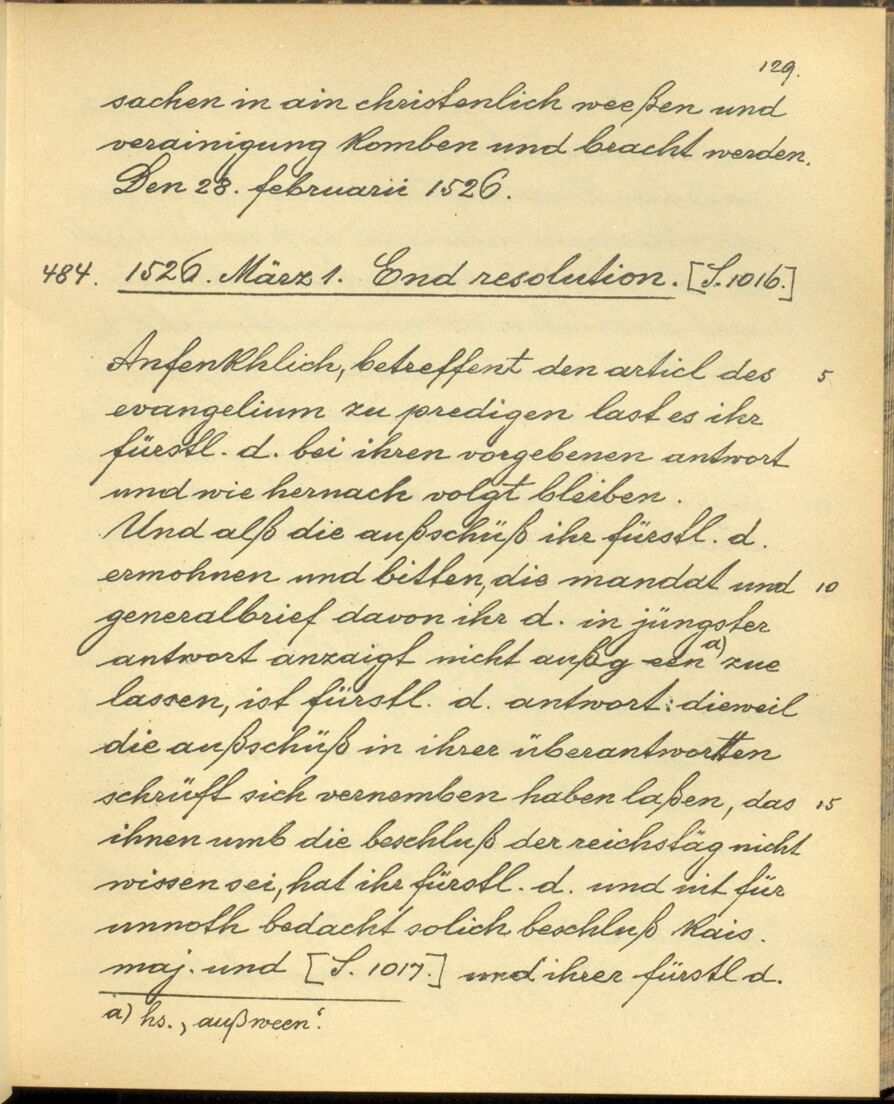 129.
sachen in ain christenlich weeßen und
verainigung komben und bracht werden.
Den 28. februarii 1526.
484. 1526. März 1. End resolution. [S. 1016.]
Anfenkhlich, betreffent den articl des 5
evangelium zu predigen last es ihr
fürstl. d. bei ihren vorgebenen antwort
und wie hernach volgt bleiben.
Und alß die außschüß ihr fürstl. d.
ermohnen und bitten, die mandat und 10
generalbrief davon ihr d. in jüngster
antwort anzaigt nicht außgeen a) zue
lassen, ist fürstl. d. antwort: dieweil
die außschüß in ihrer überantwortten
schrüft sich vernemben haben laßen, das 15
ihnen umb die beschluß der reichstäg nicht
wissen sei, hat ihr fürstl. d. und nit für
unnoth bedacht solich beschluß kais.
maj. und [S. 1017.] und ihrer fürstl d.
a) hs. ‚außween‘.